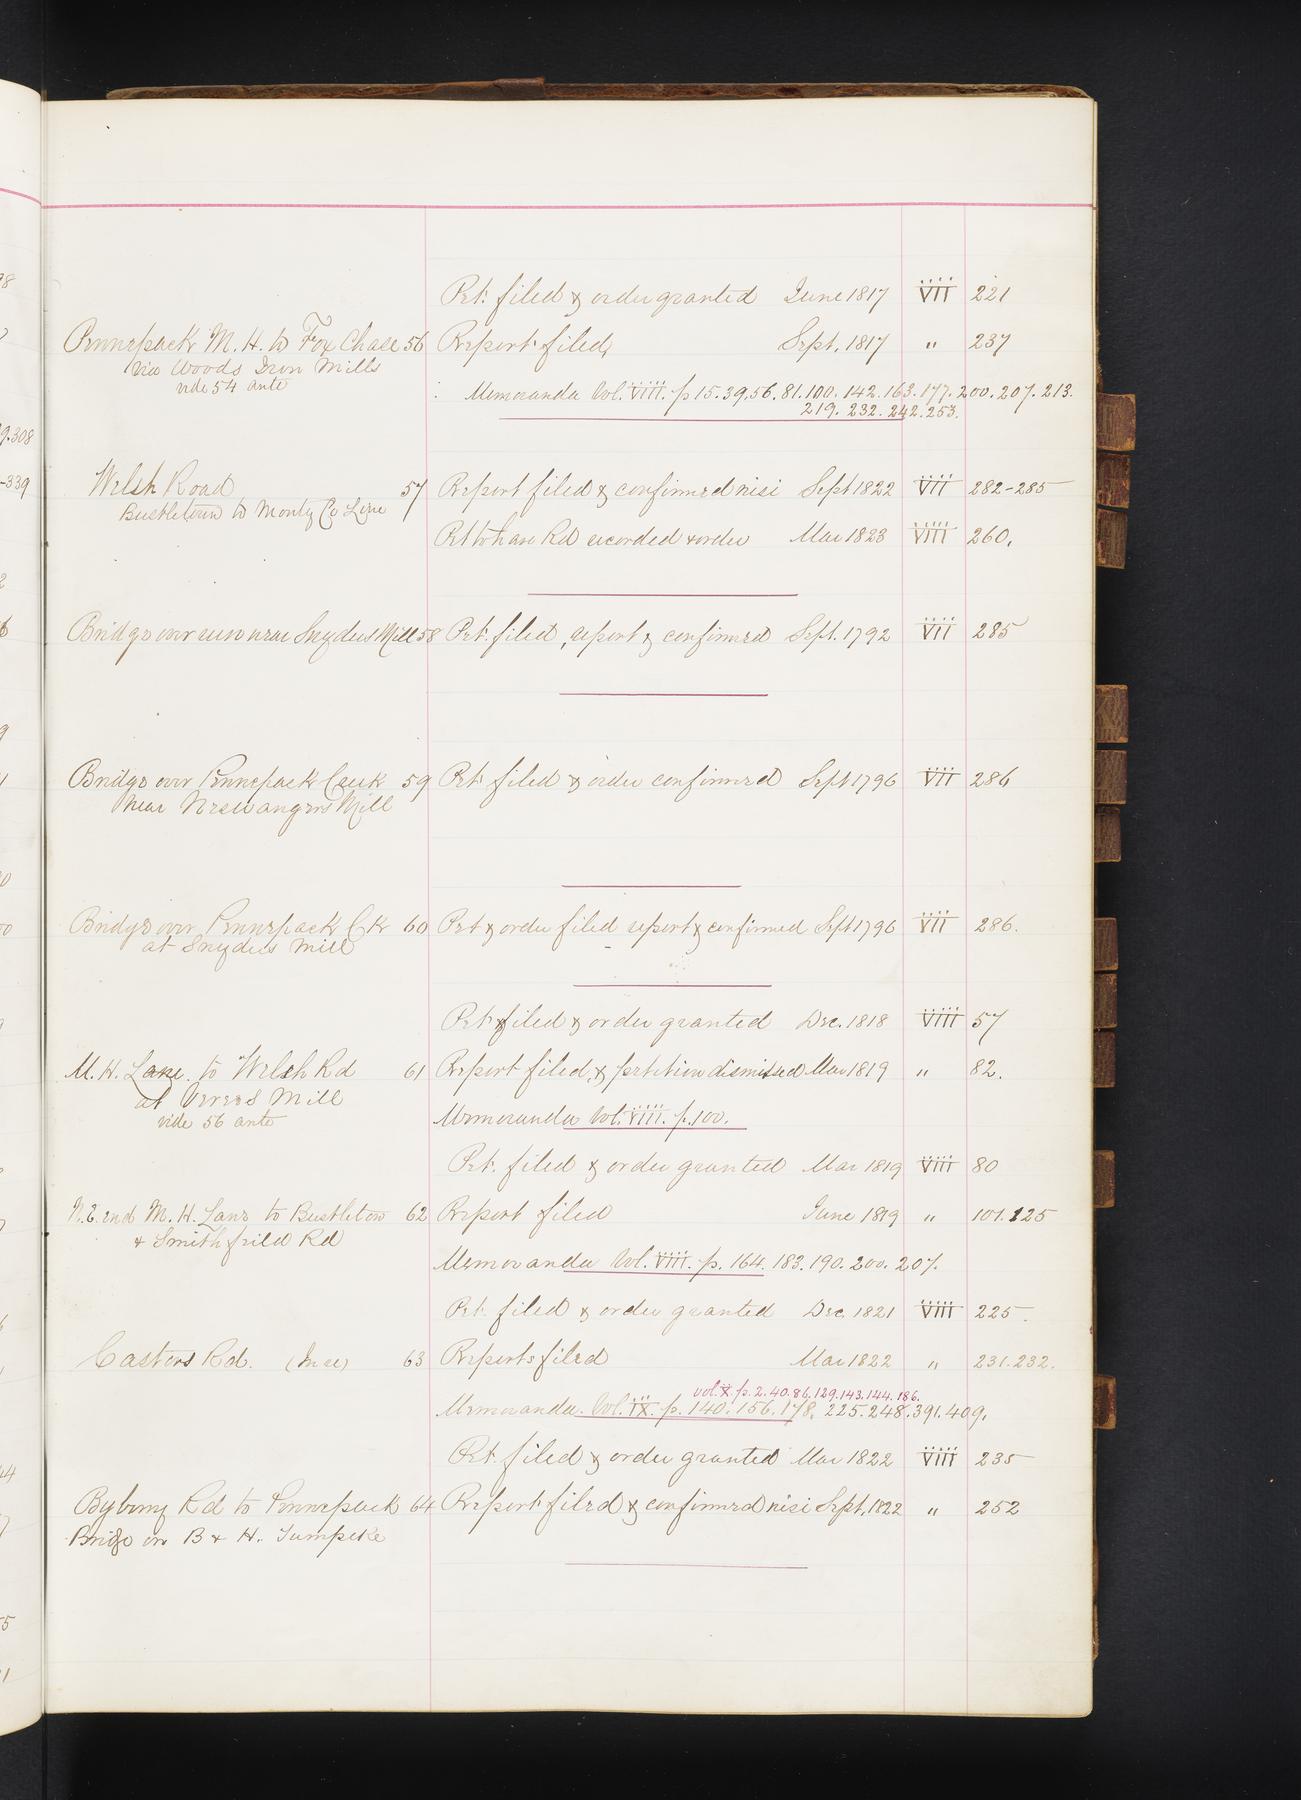 Pet. filed & order granted June 1817 VII 221
Pennepack M. H. to Fox Chase 56 Report filed, Sept. 1817 " 237
via Woods Iron Mills
vide 54 ante
Memoranda Vol. VIII. p 15. 39. 56. 81. 100. 142. 163. 177. 200. 207. 213.
219. 232. 242. 253.
Welsh Road 57 Report filed & confirmed nisi Sept 1822 VII 282-285
Bustletown to Montg Co Line
Pet to have Rd recorded & order Mar 1823 VIII 260.
Bridge over run near Snyders Mill 58 Pet. filed, report & confirmed Sept. 1792 VII 285
Bridge over Pennepack Creek 59 Pet. filed & order confirmed Sept 1796 VII 286
near Mill
Bridge over Pennepack Ck 60 Pet & order filed report & confirmed Sept 1796 VII 286.
at Snyders Mill
Pet filed & order granted Dec. 1818 VIII 57
M. H. Lane to Welsh Rd 61 Report filed, & petition dismissed Mar 1819 " 82.
at Verees Mill
vide 56 ante
Memoranda Vol. VIII. p. 100.
Pet. filed & order granted Mar 1819 VIII 80
N. E. end M. H. Lane to Bustleton 62 Report filed June 1819 " 101. 125
& Smithfield Rd
Memoranda Vol. VIII. p. 164. 183. 190. 200. 207.
Pet. filed & order granted Dec. 1821 VIII 225.
Castors Rd. 63 Reports filed Mar 1822 " 231. 232.
vol. X. p. 2. 40. 86. 129. 143. 144. 186.
Memoranda. Vol. IX. p. 140. 156. 178. 225. 248. 391. 409.
Pet. filed & order granted Mar 1822 VIII 235
Byberry Rd to Pennepack 64 Report filed & confirmed nisi Sept. 1822 " 252
Bridge on B & H. Turnpike
9.308
-339